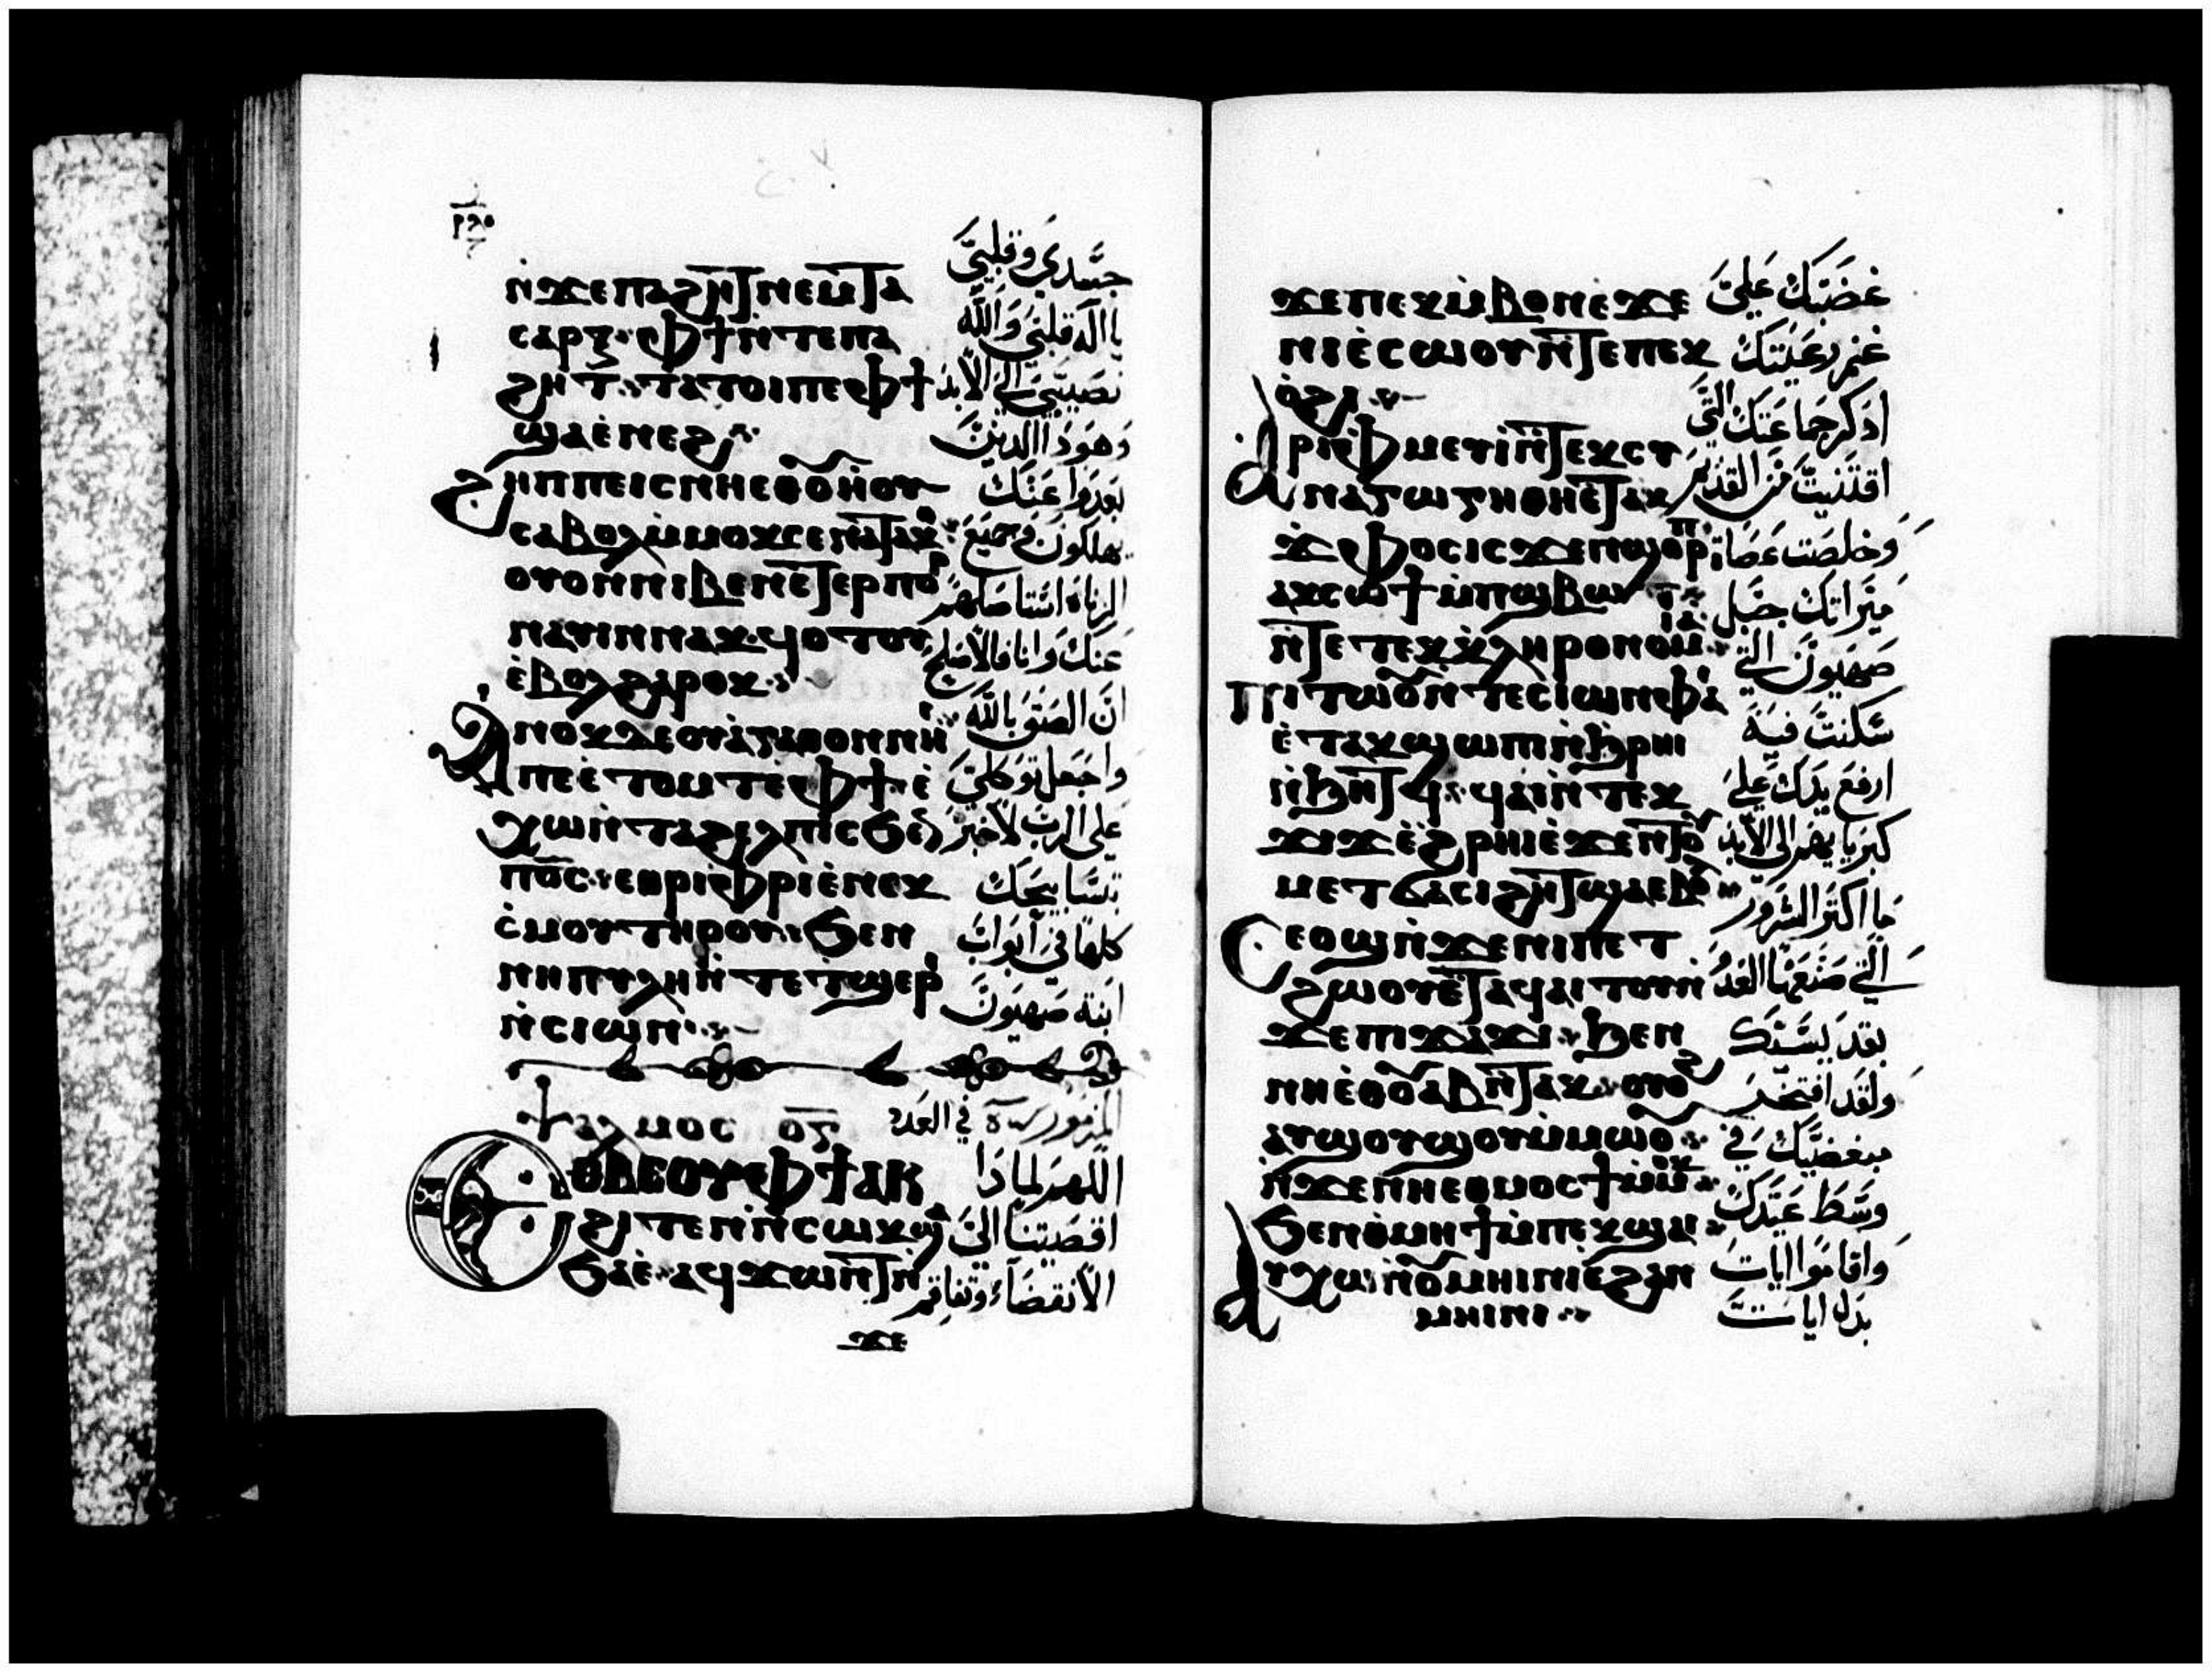 ⲛ̀ϫⲉⲡⲁϩⲏⲧ ⲛⲉⲙⲧⲁ
ⲥⲁⲣⲝ ⲫϯ ⲛ̀ⲧⲉⲡⲁ
ϩⲏⲧ ⲧⲁⲧⲟⲓ ⲡⲉ ⲫϯ
ϣⲁⲉ̀ⲛⲉϩ
ϩⲏⲡⲡⲉ ⲓⲥ ⲛⲏⲉⲑⲟⲩⲏⲟⲩ
ⲥⲁⲃⲟⲗ ⲙ̀ⲙⲟⲕ ⲥⲉⲛⲁⲧⲁⲕⲟ
ⲟⲩⲟⲛ ⲛⲓⲃⲉⲛ ⲉⲧⲉⲣⲡⲟ
ⲉ̀ⲃⲟⲗϩⲁⲣⲟⲕ
ⲁⲛⲟⲕ ⲇⲉ ⲟⲩⲁ̀ⲅⲁⲑⲟⲛ ⲛⲏⲓ
ⲡⲉ ⲉ̀ⲧⲟⲙⲧ ⲉ̀ⲫϯ ⲉ̀
ⲭⲱ ⲛ̀ⲧⲁϩⲉⲗⲡⲓⲥ ϧⲉⲛ
ⲡⲟ̅ⲥ̅ ⲉⲑⲣⲓⲫⲣⲓ ⲉ̀ⲛⲉⲕ
ⲥ̀ⲙⲟⲩ ⲧⲏⲣⲟⲩ ϧⲉⲛ
ⲛⲓⲡⲩⲗⲏ ⲛ̀ⲧⲉ ⲧϣⲉⲣⲓ
ⲛ̀ⲥⲓⲱⲛ
ⲯⲁⲗⲙⲟⲥ ⲟ̅ⲅ̅
ⲉⲑⲃⲉⲟⲩ ⲫϯ ⲁⲕ
ϩⲓⲧⲉⲛ ⲛ̀ⲥⲱⲕ ϣⲁ
ϧⲁⲉ̀ ⲁϥϫⲱⲛⲧ ⲛ
ϫⲉ
جسدي وقلبي
يا اله قلبي والله
نصيبي الي الابد
وهوذا الذين
بعدوا عنك
يهلكون وجميع
الزناه استاصلهم
عنك وانا فالاصلح
ان الصق بالله
واجعل توكلي
علي الرب لاخبر
بتسابيحك
كلها في ابواب
ابنة صهيون
المزمور في العدد
اللهم لماذا
اقصيتنا الي
الانقضاء وتفاقم
ϫⲉ ⲡⲉⲕⲙ̀ⲃⲟⲛ ⲉ̀ϫⲉ
ⲛⲓⲉ̀ⲥⲱⲟⲩ ⲛ̀ⲧⲉ ⲡⲉⲕ
ⲟ̀ϩⲓ
ⲁⲣⲓⲫⲙⲉⲩⲓ̀ ⲛ̀ⲧⲉⲕⲥⲩ
ⲛⲁⲅⲱⲅⲏ ⲑⲏⲉ̀ⲧⲁⲕ
ϫ̀ⲫⲟⲥ ⲓⲥϫⲉⲛ ϣⲟⲣⲡ
ⲁⲕⲥⲱϯ ⲙ̀ⲡϣⲃⲱⲧ
ⲛ̀ⲧⲉ ⲧⲉⲕⲕ̀ⲗⲏⲣⲟⲛⲟⲙⲓⲁ
ⲡⲓⲧⲱⲟⲩ ⲛ̀ⲧⲉ ⲥⲓⲱⲛ ⲫⲁ
ⲉ̀ⲧⲁⲕϣⲱⲡⲓ ⲛ̀ϧⲣⲏⲓ
ⲛ̀ϧⲏⲧϥ ϥⲁⲓ ⲛ̀ⲧⲉⲕ
ϫⲓϫ ⲉ̀ϩⲣⲏⲓ ⲉ̀ϫⲉⲛ ⲧⲟⲩ
ⲙⲉⲧϭⲁⲥⲓϩⲏⲧ ϣⲁⲉⲃⲟⲗ
ⲥⲉⲟϣ ⲛ̀ϫⲉ ⲛⲓⲡⲉⲧ
ϩⲱⲟⲩ ⲉ̀ⲧⲁϥⲁⲓⲧⲟⲩ ⲛ̀
ϫⲉ ⲡⲓϫⲁϫⲓ ϧⲉⲛ
ⲛⲏⲉⲑⲟⲩⲁⲃ ⲛ̀ⲧⲁⲕ ⲟⲩⲟϩ
ⲁⲩϣⲟⲩϣⲟⲩ ⲙ̀ⲙⲱⲟⲩ
ⲛ̀ϫⲉ ⲛⲏⲉⲑⲙⲟⲥϯ ⲙ̀ⲙⲟⲕ
ϧⲉⲛ ⲑ̀ⲙⲏϯ ⲙ̀ⲡⲉⲕϣⲁⲓ
ⲁⲩⲭⲱ ⲛ̀ⲟⲩⲙⲏⲓⲛⲓ ⲉ̀ϩⲁⲛ
ⲙⲏⲓⲛⲓ
غضبك علي
غنم رعيتك
اذكر جماعتك التي
اقتنيت من القديم
وخلصت عصاة
ميراتك جبل
صهيون التي
سكنت فيه
ارفع يدك علي
كبريايهم الي الابد
ما اكتر الشرور
التي صنعها العدو
بقديسيك
ولقد افتخر
مبغضيك في
وسط عيدك
واقاموا ايات
بدل ايات